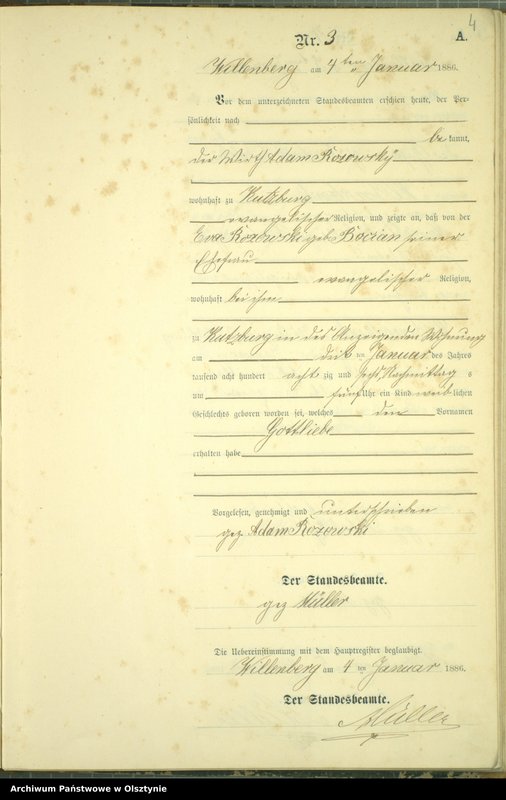 4
Nr. 3 A.
Willenberg am 4ten Januar 1886.
Vor dem unterzeichneten Standesbeamten erschien heute, der Per-
sönlichkeit nach
bekannt,
der Wirth Adam Rozowsky
wohnhaft zu Kutzburg
evangelischer Religion, und zeigte an, daß von der
Eva Rozowski geb Bocian seiner
Ehefrau
evangelischer Religion,
wohnhaft bei ihm
zu Kutzburg in des Anzeigenden Wohnung
am ten Januar des Jahres
tausend acht hundert achtzig und sechs Nachmittags
um fünf Uhr ein Kind weiblichen
Geschlechts geboren worden sei, welches den Vornamen
Gottliebe
erhalten habe
Vorgelesen, genehmigt und unterschrieben
gez Adam Rozowski
Der Standesbeamte.
gez Müller
Die Uebereinstimmung mit dem Hauptregister beglaubigt.
Willenberg am 4 ten Januar 1886.
Der Standesbeamte.
Müller
Archiwum Państwowe w Olsztynie